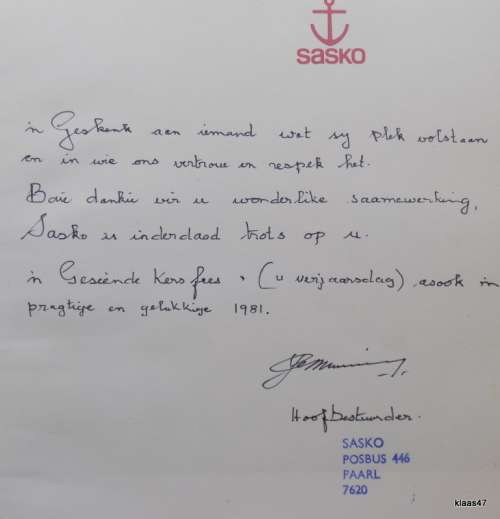 sasko
'n Geskenk aan iemand wat sy plek volstaan
en in wie ons vertroue en respek het.
Baie dankie vir u wonderlike saamewerking,
Sasko is inderdaad trots op u.
'n Geseënde Kersfees, (u verjaarsdag), asook 'n
pragtige en gelukkige 1981.
Hoofbestuurder.
SASKO
POSBUS 446
PAARL
7620
klaas47